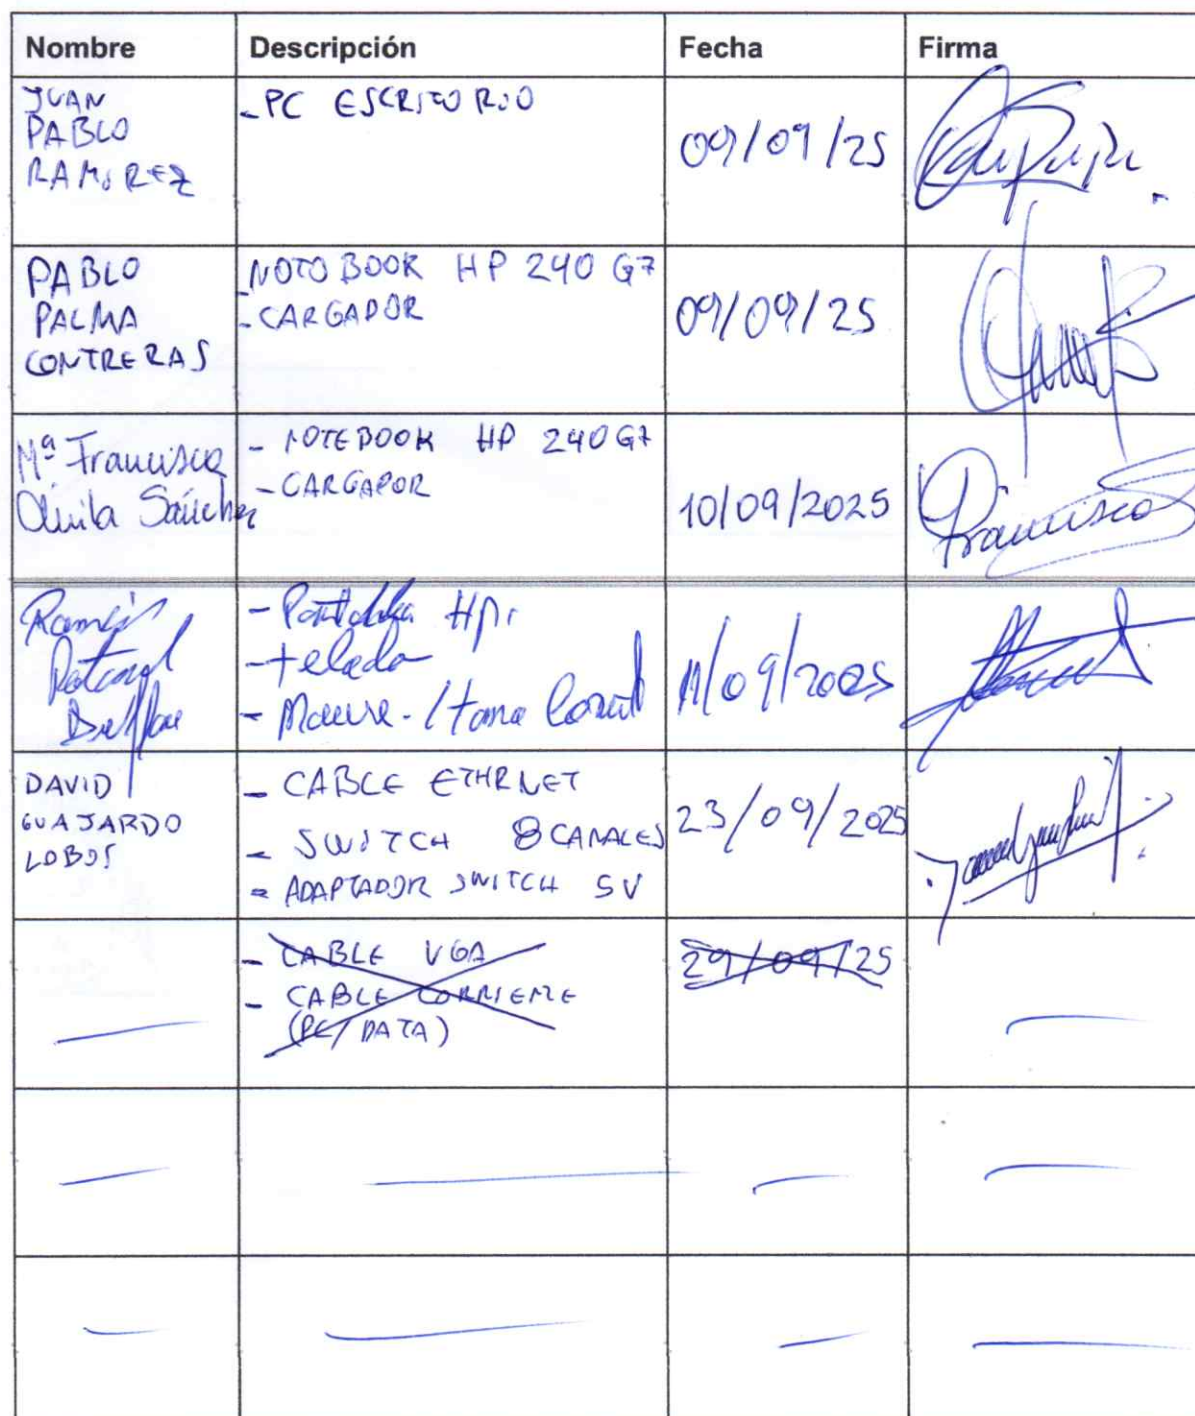 Nombre Descripción Fecha Firma
JUAN
PABLO
RAMIREZ
-PC ESCRITORIO
09/09/25
PABLO
PALMA
CONTRERAS
-NOTOBOOK HP 240 G7
-CARGADOR
09/09/25
Mª Francisca
Sánchez
- NOTEBOOK HP 240 G7
- CARGADOR
10/09/2025
Francisca
Ramón
- HP
-
- Mouse
11/09/2025
DAVID
GUAJARDO
LOBOS
- CABLE ETHRNET
- SWITCH 8 CANALES
- ADAPTADOR SWITCH 5V
23/09/2025
- CABLE VGA
- CABLE CORRIENTE
(PC/DATA)
29/09/25